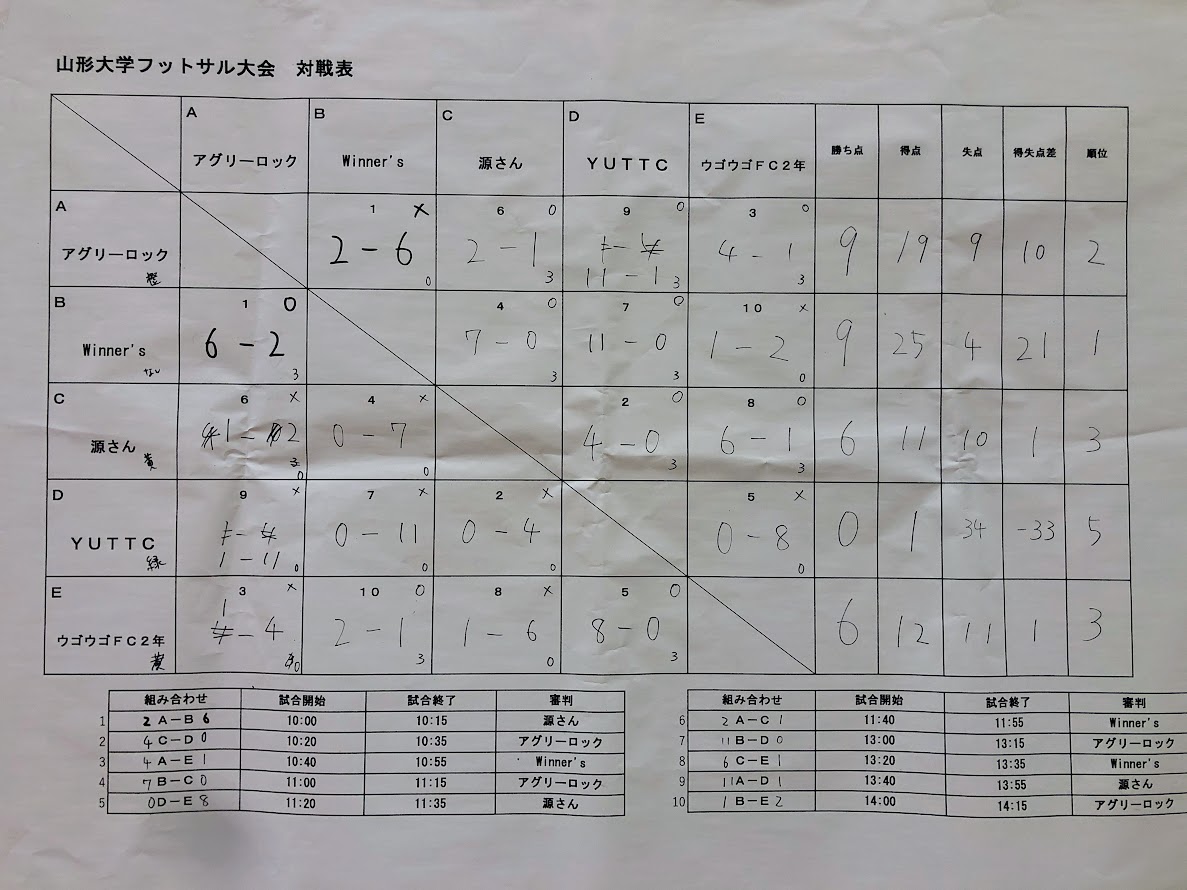 山形大学フットサル大会 対戦表
A アグリーロック B Winner's C 源さん D YUTTC E ウゴウゴFC2年 勝ち点 得点 失点 得失点差 順位
A 1 × 6 ○ 9 ○ 3 ○
アグリーロック 2-6 2-1 4-1 9 19 9 10 2
橙 0 3 11-1 3 3
B 1 ○ 4 ○ 7 ○ 10 ×
Winner's 6-2 7-0 11-0 1-2 9 25 4 21 1
なし 3 3 3 0
C 6 × 4 × 2 ○ 8 ○
源さん 1-2 0-7 4-0 6-1 6 11 10 1 3
黄 0 0 3 3
D 9 × 7 × 2 × 5 ×
YUTTC 0-11 0-4 0-8 0 1 34 -33 5
緑 1-11 0 0 0 0
E 3 × 10 ○ 8 × 5 ○
ウゴウゴFC2年 1-4 2-1 1-6 8-0 6 12 11 1 3
黄 0 3 0 3
組み合わせ 試合開始 試合終了 審判
1 2 A-B 6 10:00 10:15 源さん
2 4 C-D 0 10:20 10:35 アグリーロック
3 4 A-E 1 10:40 10:55 Winner's
4 7 B-C 0 11:00 11:15 アグリーロック
5 0 D-E 8 11:20 11:35 源さん
組み合わせ 試合開始 試合終了 審判
6 2 A-C 1 11:40 11:55 Winner's
7 11 B-D 0 13:00 13:15 アグリーロック
8 6 C-E 1 13:20 13:35 Winner's
9 11 A-D 1 13:40 13:55 源さん
10 1 B-E 2 14:00 14:15 アグリーロック